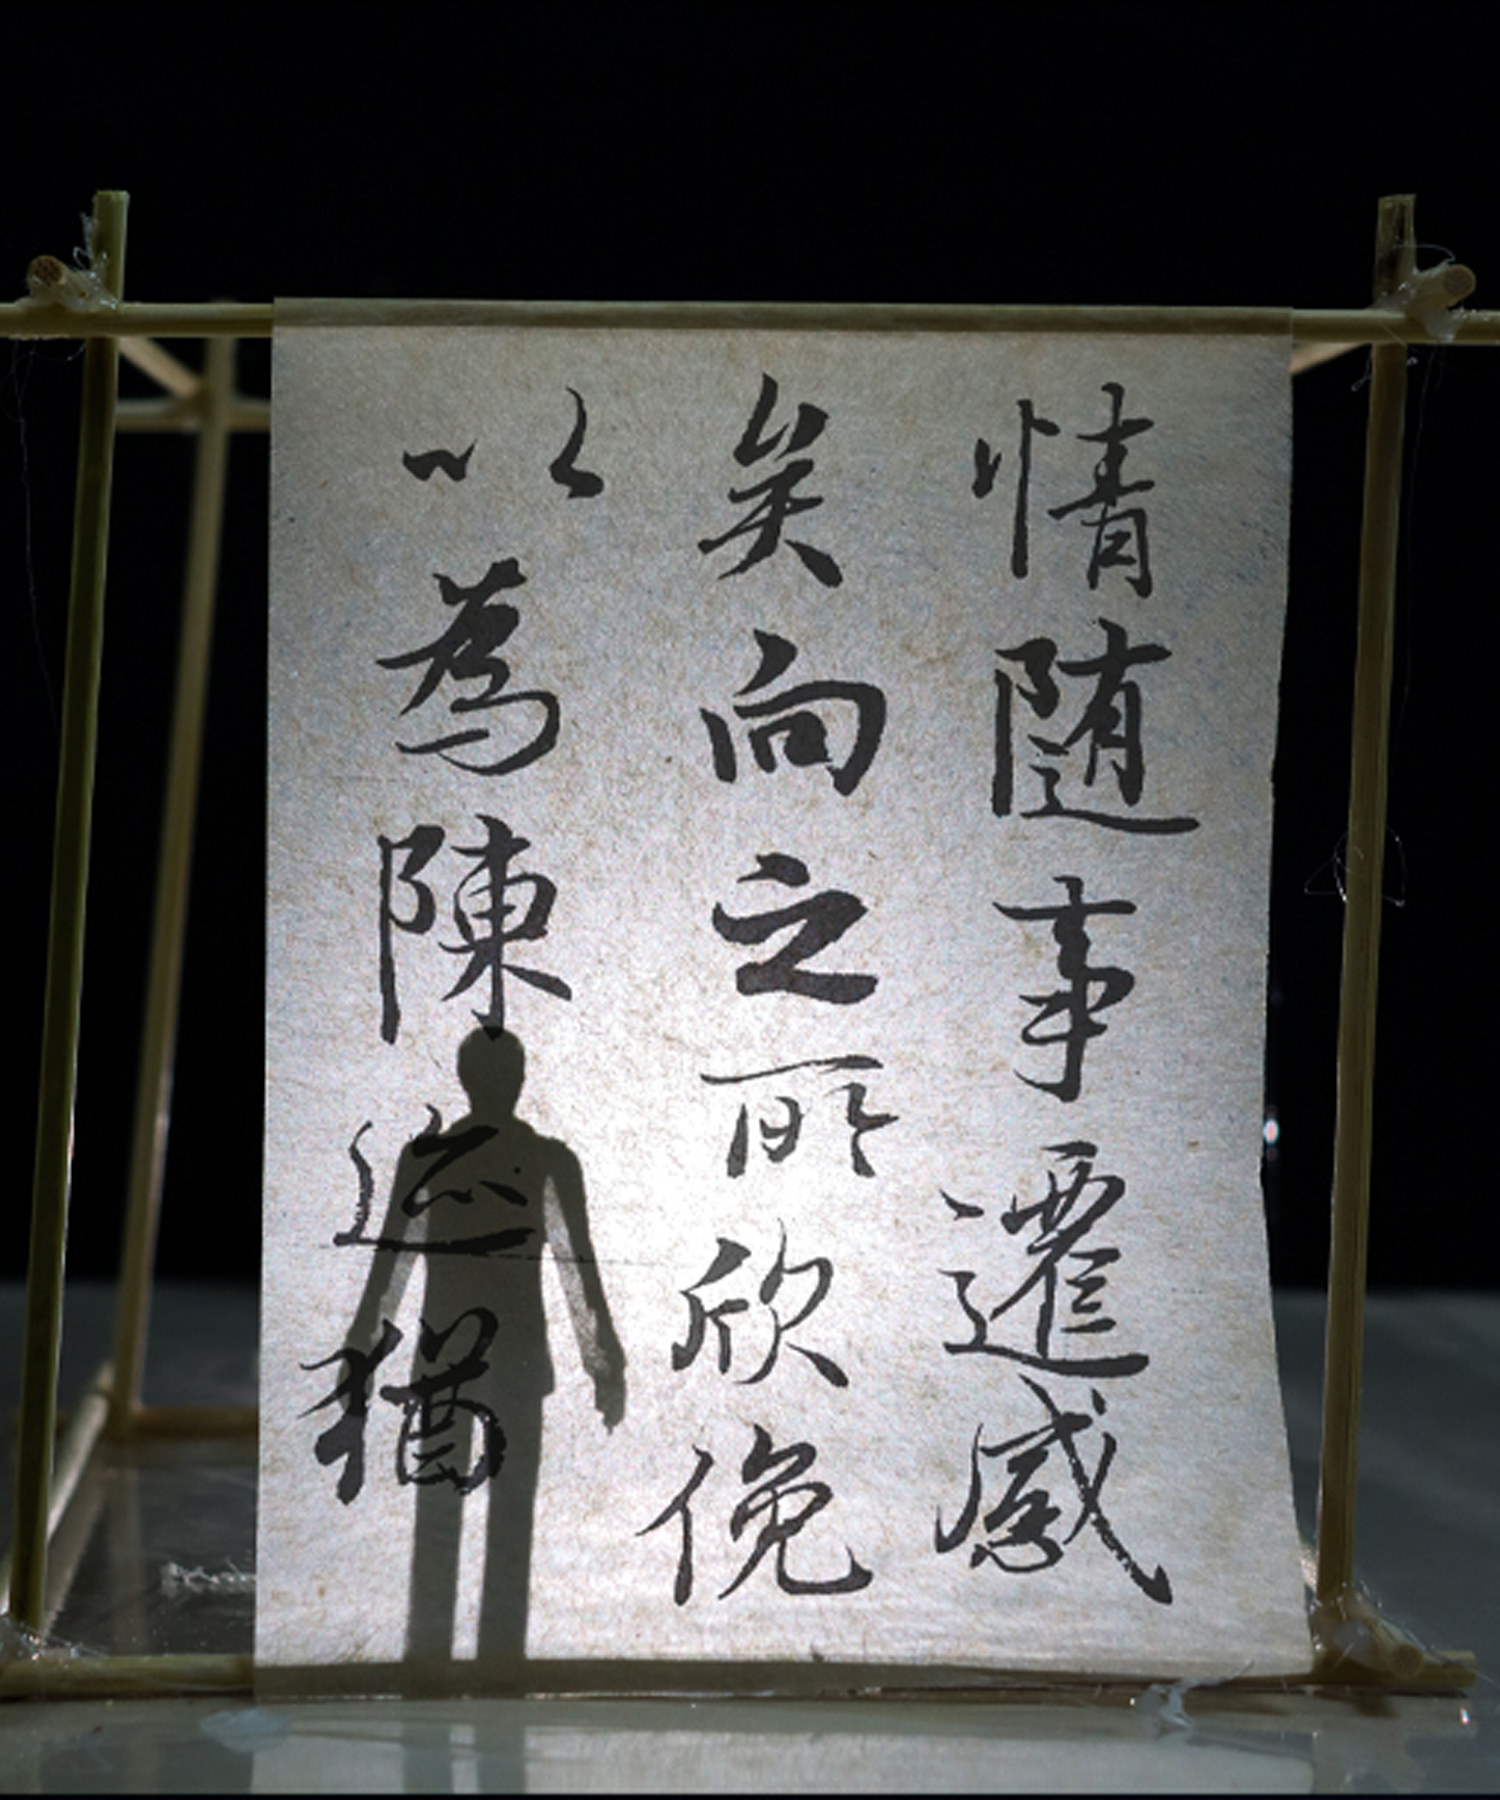 情随事遷感
矣向之所欣俛
以為陳迹猶